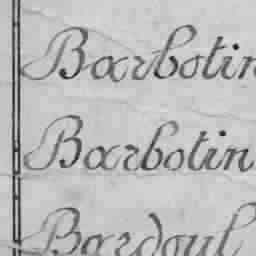 Barbotin
Barbotin
Bardoul